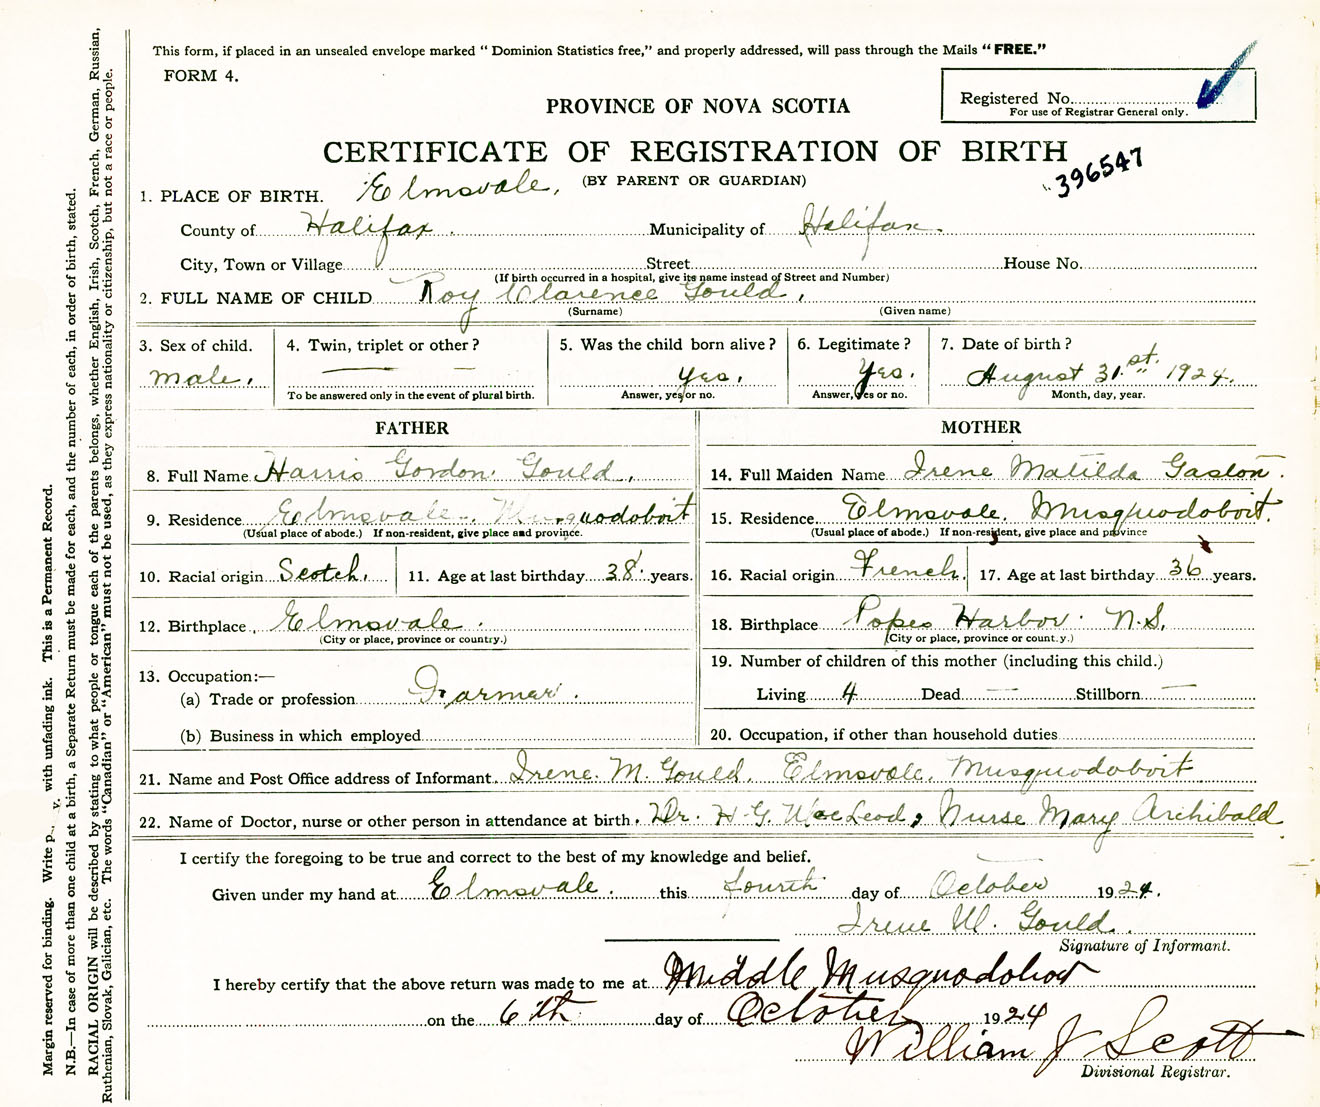 This form, if placed in an unsealed envelope marked "Dominion Statistics free," and properly addressed, will pass through the Mails "FREE."
FORM 4.
Registered No.
For use of Registrar General only.
PROVINCE OF NOVA SCOTIA
CERTIFICATE OF REGISTRATION OF BIRTH
(BY PARENT OR GUARDIAN)
396547
1. PLACE OF BIRTH. Elmsvale,
County of Halifax. Municipality of Halifax.
City, Town or Village Street House No.
(If birth occurred in a hospital, give its name instead of Street and Number)
2. FULL NAME OF CHILD Roy Clarence Gould,
(Surname) (Given name)
3. Sex of child. male.
4. Twin, triplet or other? — —
To be answered only in the event of plural birth.
5. Was the child born alive? Yes.
Answer, yes or no.
6. Legitimate? Yes.
Answer, yes or no.
7. Date of birth? August 31.st 1924.
Month, day, year.
FATHER
8. Full Name Harris Gordon Gould,
9. Residence Elmsvale, Musquodoboit
(Usual place of abode.) If non-resident, give place and province.
10. Racial origin Scotch, 11. Age at last birthday 38 years.
12. Birthplace Elmsvale.
(City or place, province or country.)
13. Occupation:—
(a) Trade or profession Farmer.
(b) Business in which employed
MOTHER
14. Full Maiden Name Irene Matilda Gaston.
15. Residence Elmsvale, Musquodoboit.
(Usual place of abode.) If non-resident, give place and province
16. Racial origin French. 17. Age at last birthday 36 years.
18. Birthplace Popes Harbor. N.S.
(City or place, province or count.y.)
19. Number of children of this mother (including this child.)
Living 4 Dead — Stillborn —
20. Occupation, if other than household duties
21. Name and Post Office address of Informant. Irene. M. Gould. Elmsvale, Musquodoboit
22. Name of Doctor, nurse or other person in attendance at birth. Dr. H. G. MacLeod, Nurse Mary Archibald
I certify the foregoing to be true and correct to the best of my knowledge and belief.
Given under my hand at Elmsvale. this fourth day of October 1924.
Irene M. Gould.
Signature of Informant.
I hereby certify that the above return was made to me at Middle Musquodoboit
on the 6th day of October 1924
William J Scott
Divisional Registrar.
Margin reserved for binding. Write p.. v. with unfading ink. This is a Permanent Record.
N.B.—In case of more than one child at a birth, a Separate Return must be made for each, and the number of each, in order of birth, stated.
RACIAL ORIGIN will be described by stating to what people or tongue each of the parents belongs, whether English, Irish, Scotch, French, German, Russian,
Ruthenian, Slovak, Galician, etc. The words "Canadian" or "American" must not be used, as they express nationality or citizenship, but not a race or people.